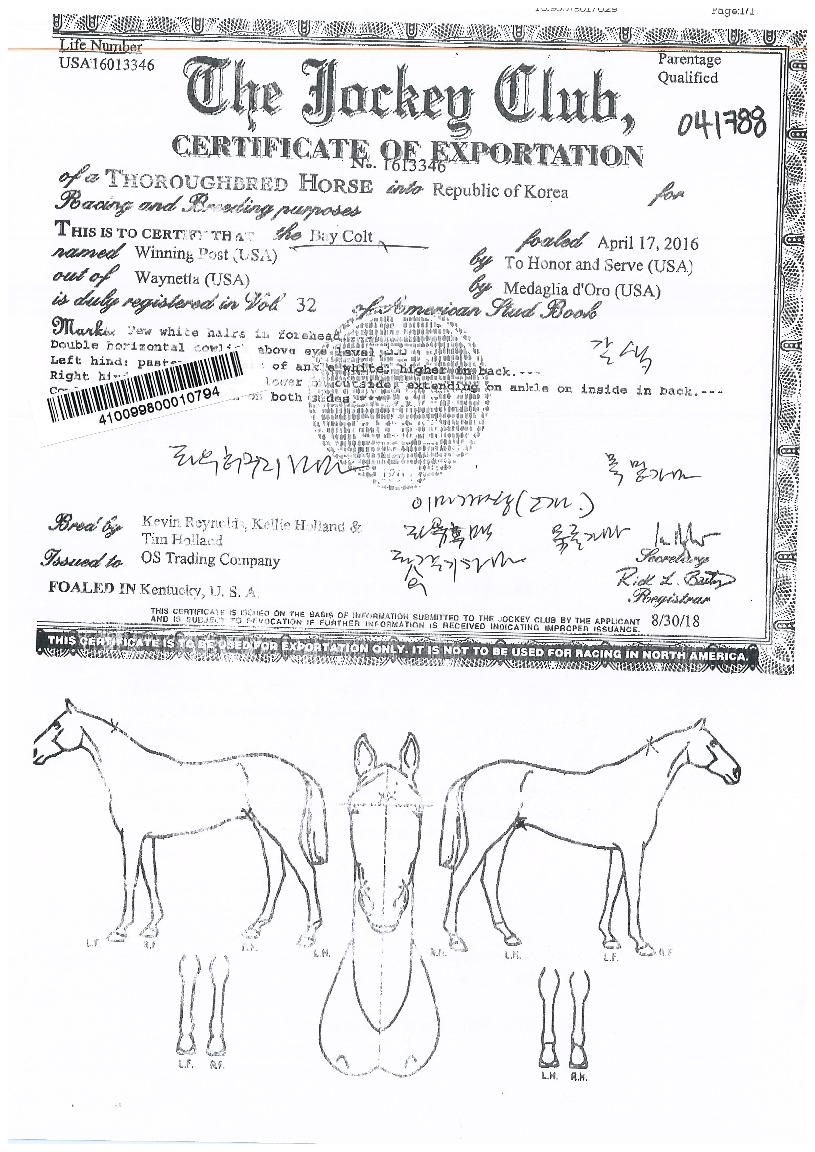 Page:1/1
Life Number
USA16013346
Parentage
Qualified
The Jockey Club,
041788
CERTIFICATE OF EXPORTATION
No. 1613346
of a THOROUGHBRED HORSE into Republic of Korea for
Racing and Breeding purposes
THIS IS TO CERTIFY THAT the Bay Colt foaled April 17, 2016
named Winning Post (USA) by To Honor and Serve (USA)
out of Waynetta (USA) by Medaglia d'Oro (USA)
is duly registered in Vol. 32 of American Stud Book
Marks. Few white hairs in forehead.
Double horizontal cowlick above eye level
갈색
Left hind: of ankle white; higher in back.---
Right lower on outside, extending on ankle on inside in back.---
on both sides
410099800010794
Bred by Kevin Reynolds, Kellie Holland &
Tim Holland
Issued to OS Trading Company
Secretary
Rick L. Bailey
Registrar
FOALED IN Kentucky, U. S. A.
THIS CERTIFICATE IS ISSUED ON THE BASIS OF INFORMATION SUBMITTED TO THE JOCKEY CLUB BY THE APPLICANT
AND IS SUBJECT TO REVOCATION IF FURTHER INFORMATION IS RECEIVED INDICATING IMPROPER ISSUANCE.
8/30/18
THIS CERTIFICATE IS TO BE USED FOR EXPORTATION ONLY. IT IS NOT TO BE USED FOR RACING IN NORTH AMERICA.
L.F. R.F. R.H. L.H. R.H. L.H. L.F. R.F.
L.F. R.F. L.H. R.H.